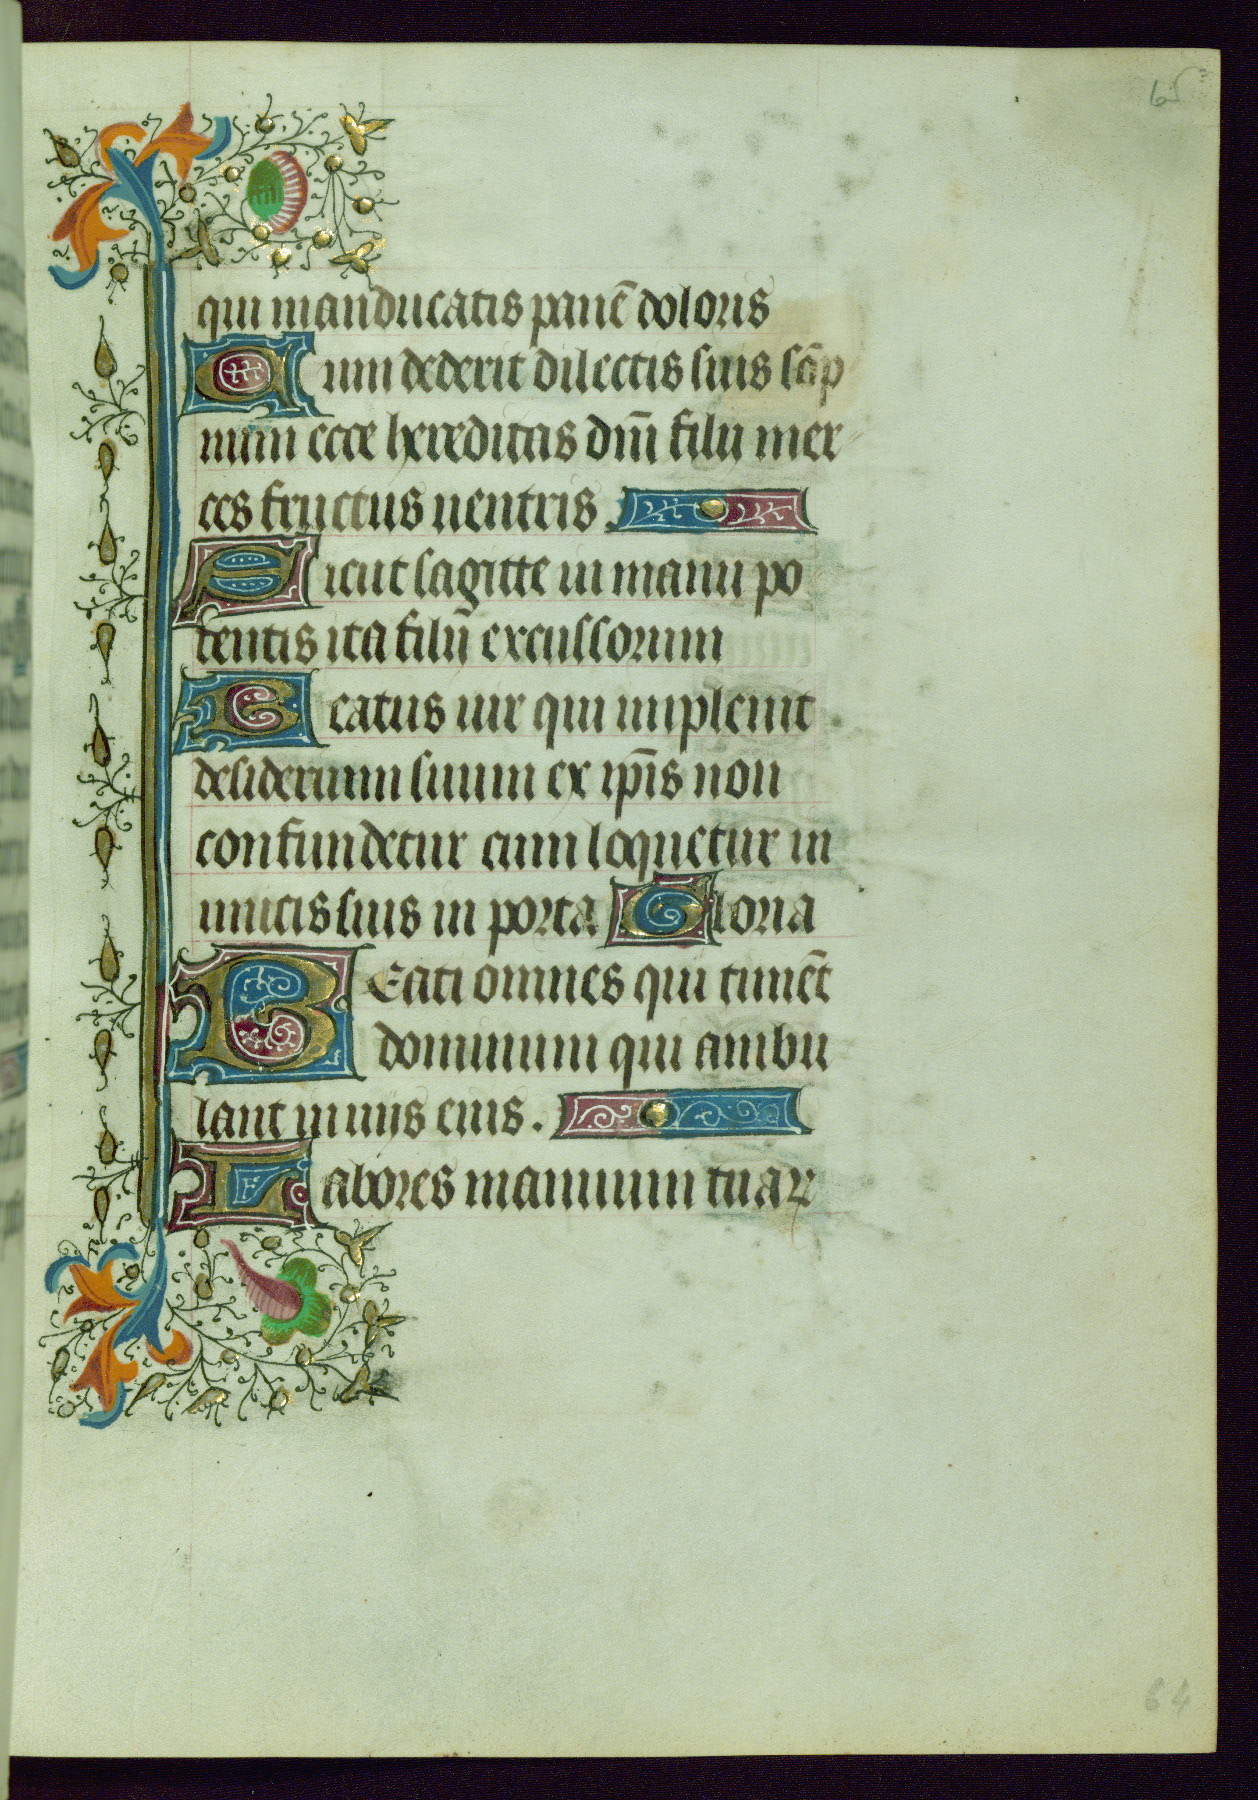 65
qui manducatis panē doloris
Cum dederit dilectis suis sāp
num ecce hereditas dn̄i filij mer
ces fructus uentris.
Sicut sagitte in manu po
tentis ita filij excussorum
Beatus uir qui impleuit
desiderium suum ex ip̄is non
confundetur cum loquetur in
imicis suis in porta Gloria
Beati omnes qui timēt
dominum qui ambu
lant in uijs eius.
Labores manuum tuaꝝ
64